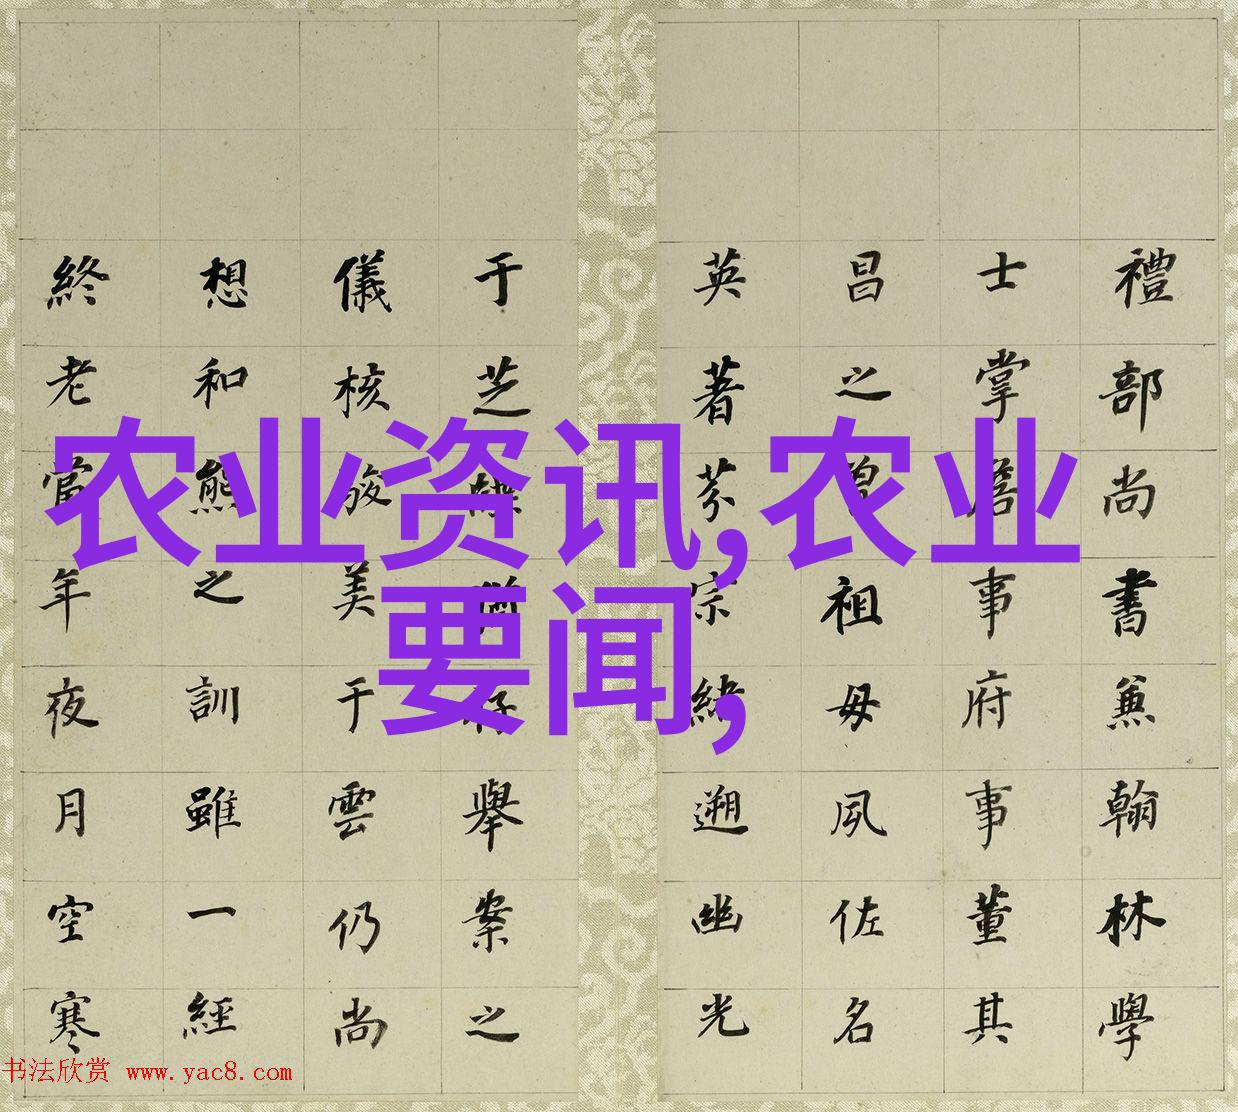 禮部尚書兼翰林學
士掌詹事府事董其
昌之曾祖母夙佐名
英著芬宗緒遡幽光
于芝舉案之
儀核駿美于雲仍尚
想和熊之訓雖一經
終老當年夜月空寒
农业资讯,农业
要闻,
书法欣赏 www.yac8.com